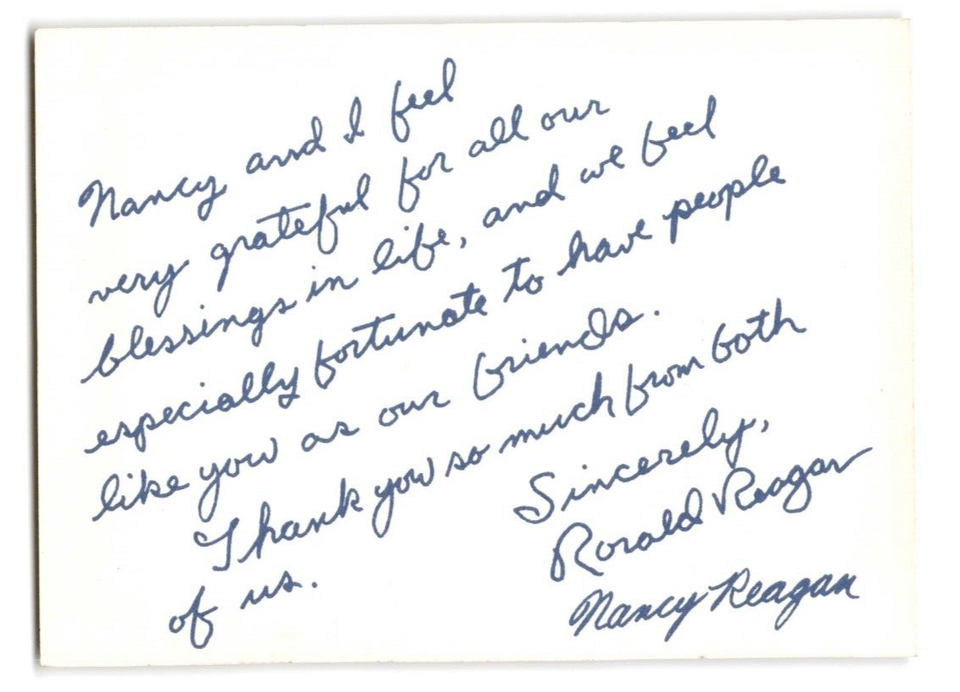 Nancy and I feel
very grateful for all our
blessings in life, and we feel
especially fortunate to have people
like you as our friends.
Thank you so much from both
of us.
Sincerely,
Ronald Reagan
Nancy Reagan